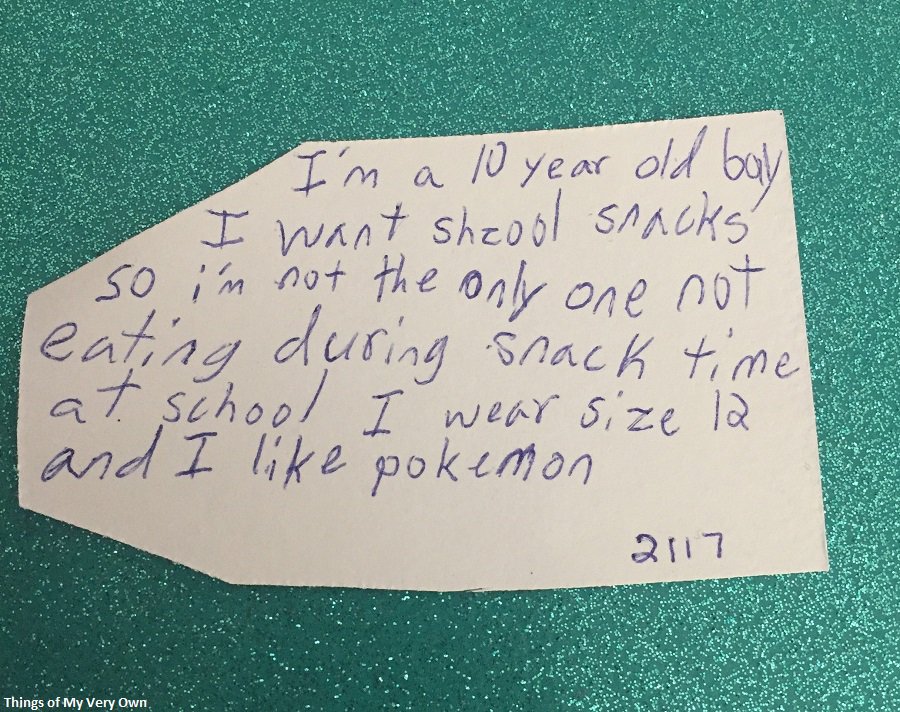 I'm a 10 year old boy
I want shcool snacks
so i'm not the only one not
eating during snack time
at school I wear size 12
and I like pokemon
2117
Things of My Very Own